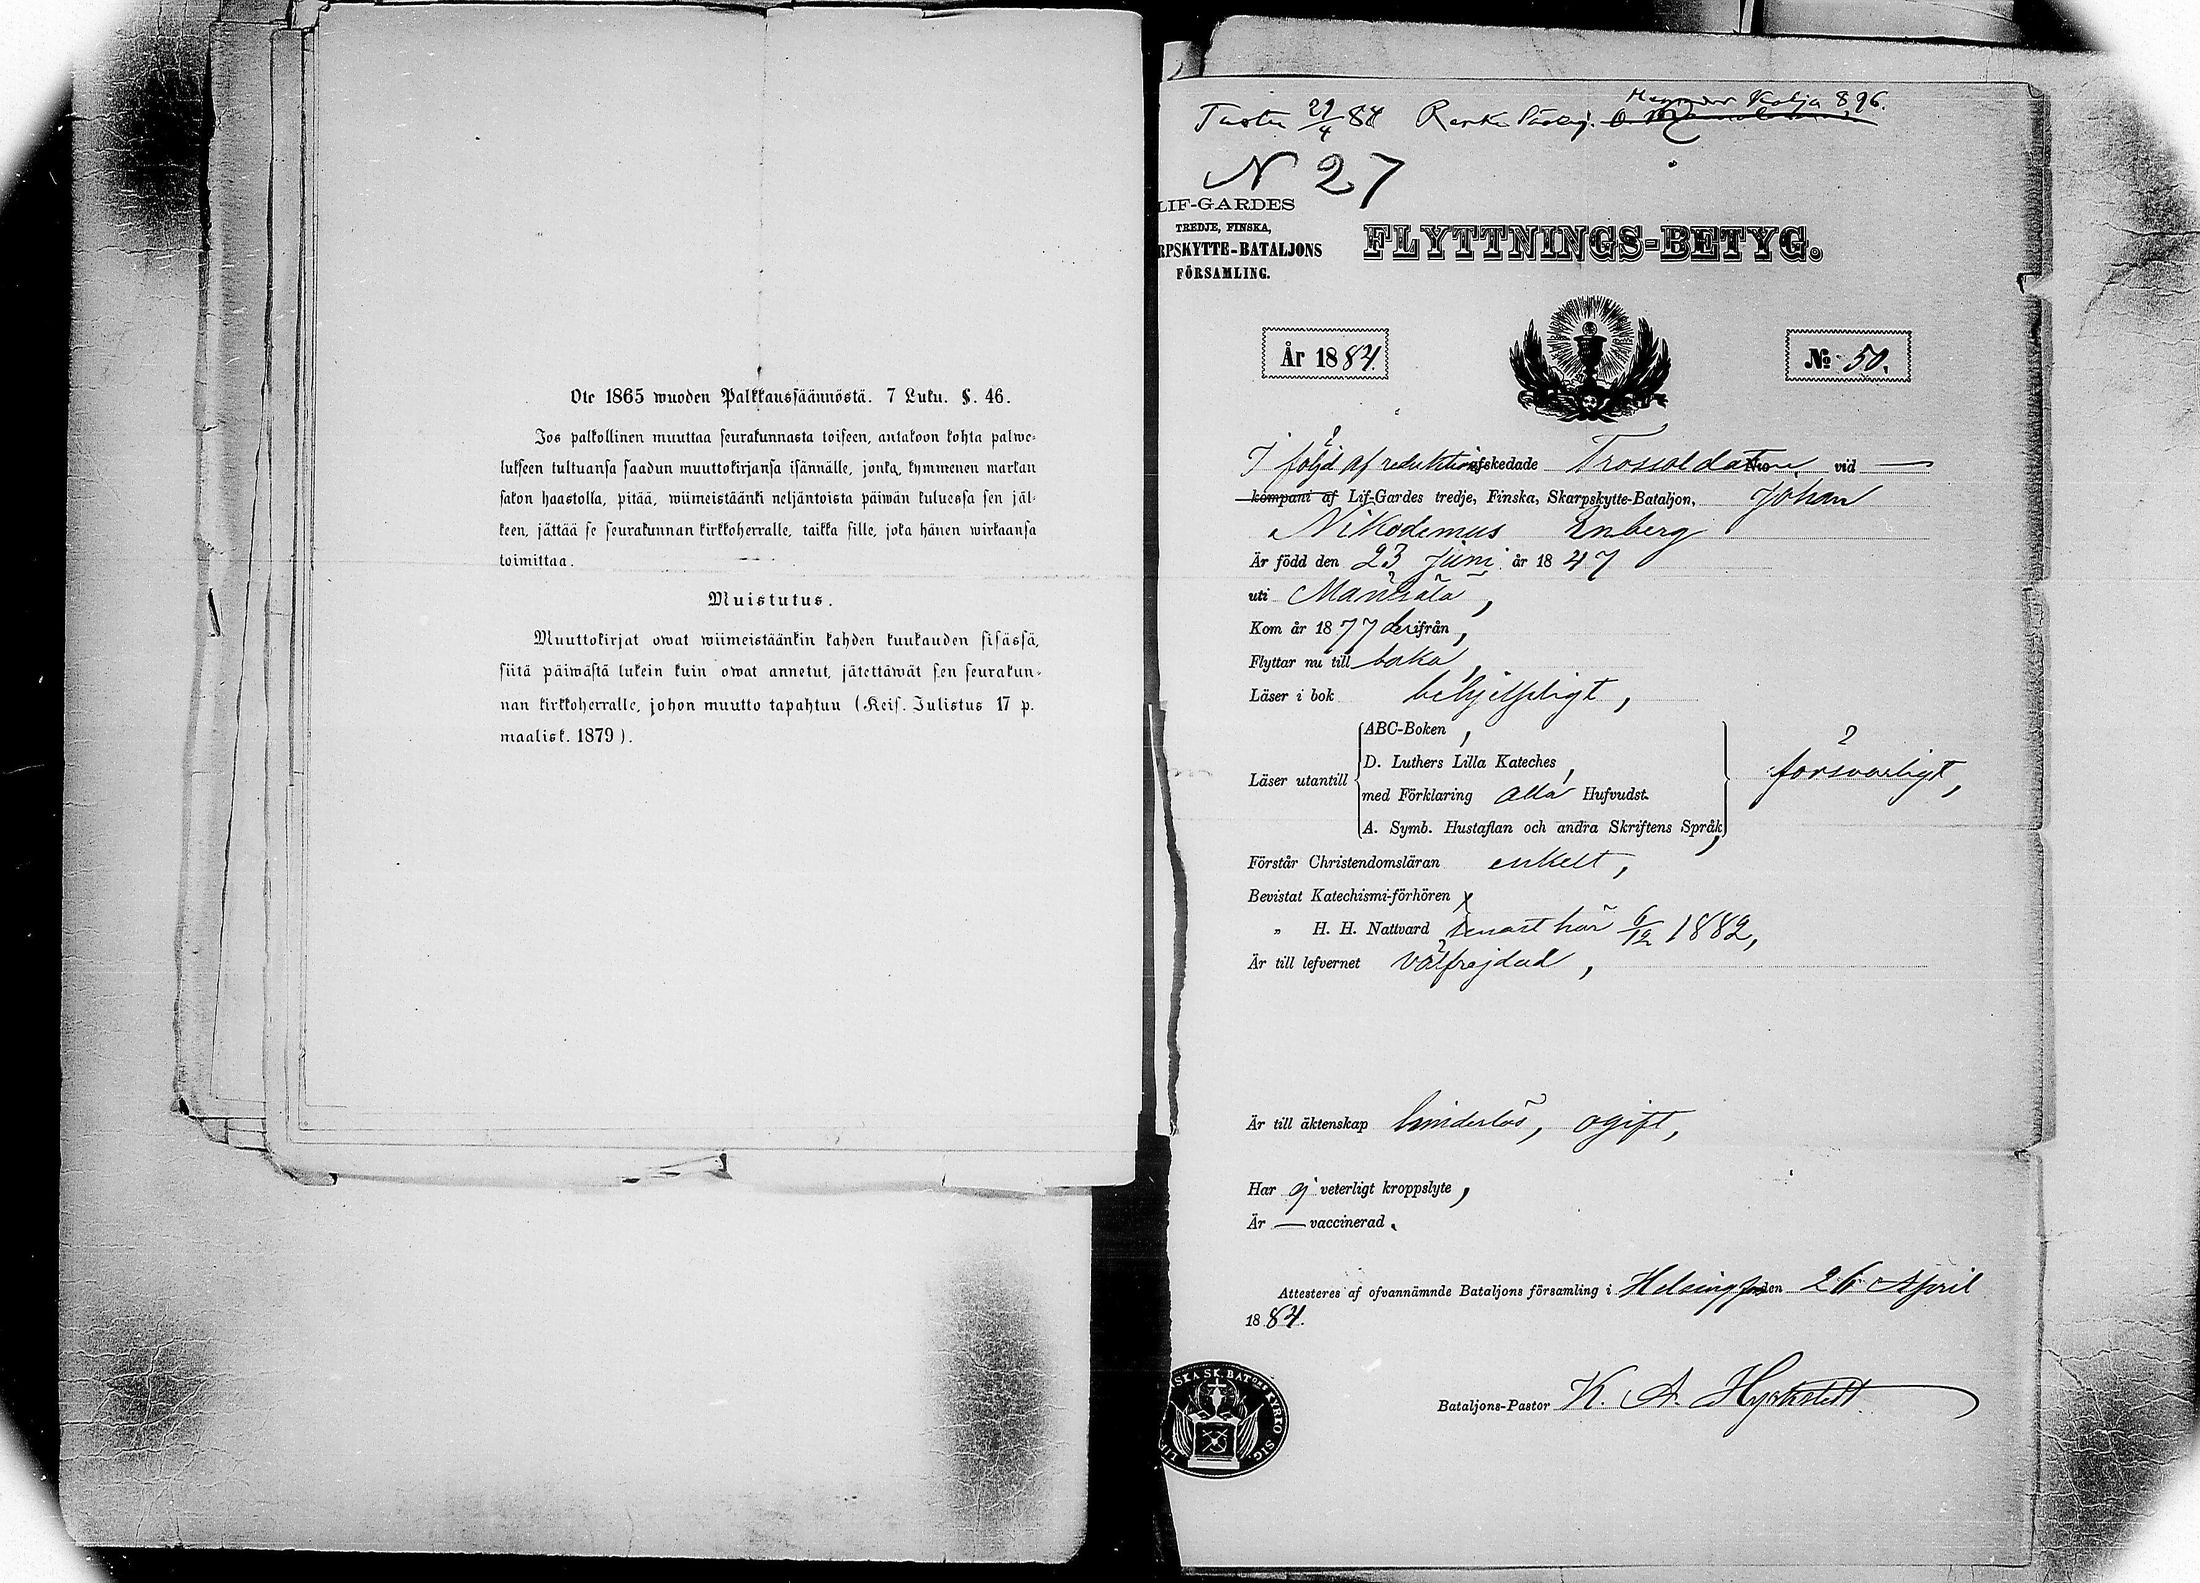 Ote 1865 wuoden Palkkaussäännöstä. 7 Luku. §. 46.
Jos palkollinen muuttaa seurakunnasta toiseen, antakoon kohta palwe-
lukseen tultuansa saadun muuttokirjansa isännälle, jonka, kymmenen markan
sakon haastolla, pitää, wiimeistäänki neljäntoista päiwän kuluessa sen jäl-
keen, jättää se seurakunnan kirkkoherralle, taikka sille, joka hänen wirkaansa
toimittaa.
Muistutus.
Muuttokirjat owat wiimeistäänkin kahden kuukauden sisässä,
siitä päiwästä lukein kuin owat annetut, jätettäwät sen seurakun-
nan kirkkoherralle, johon muutto tapahtuu (Keis. Julistus 17 p.
maalisk. 1879).
29/4 84 896.
N 27
LIF-GARDES
TREDJE, FINSKA,
RPSKYTTE-BATALJONS
FÖRSAMLING.
FLYTTNINGS-BETYG.
År 1884.
No 50.
I följd af reduktion afskedade Trossoldaten vid —
kompani af Lif-Gardes tredje, Finska, Skarpskytte-Bataljon, Johan
Nikodemus Enberg
Är född den 23 Juni år 1847
uti Mäntsälä,
Kom år 1877 derifrån,
Flyttar nu till baka,
Läser i bok behjelpligt,
Läser utantill
ABC-Boken,
D. Luthers Lilla Kateches,
med Förklaring alla Hufvudst.
A. Symb. Hustaflan och andra Skriftens Språk,
försvarligt,
Förstår Christendomsläran enkelt,
Bevistat Katechismi-förhören
„ H. H. Nattvard senast här 6/12 1882,
Är till lefvernet välfrejdad,
Är till äktenskap hinderlös, ogift,
Har ej veterligt kroppslyte,
Är — vaccinerad.
Attesteres af ofvannämnde Bataljons församling i Helsingfors den 26 April
1884.
SKA SK. BATONS KYRKO SIG.
Bataljons-Pastor K. A.